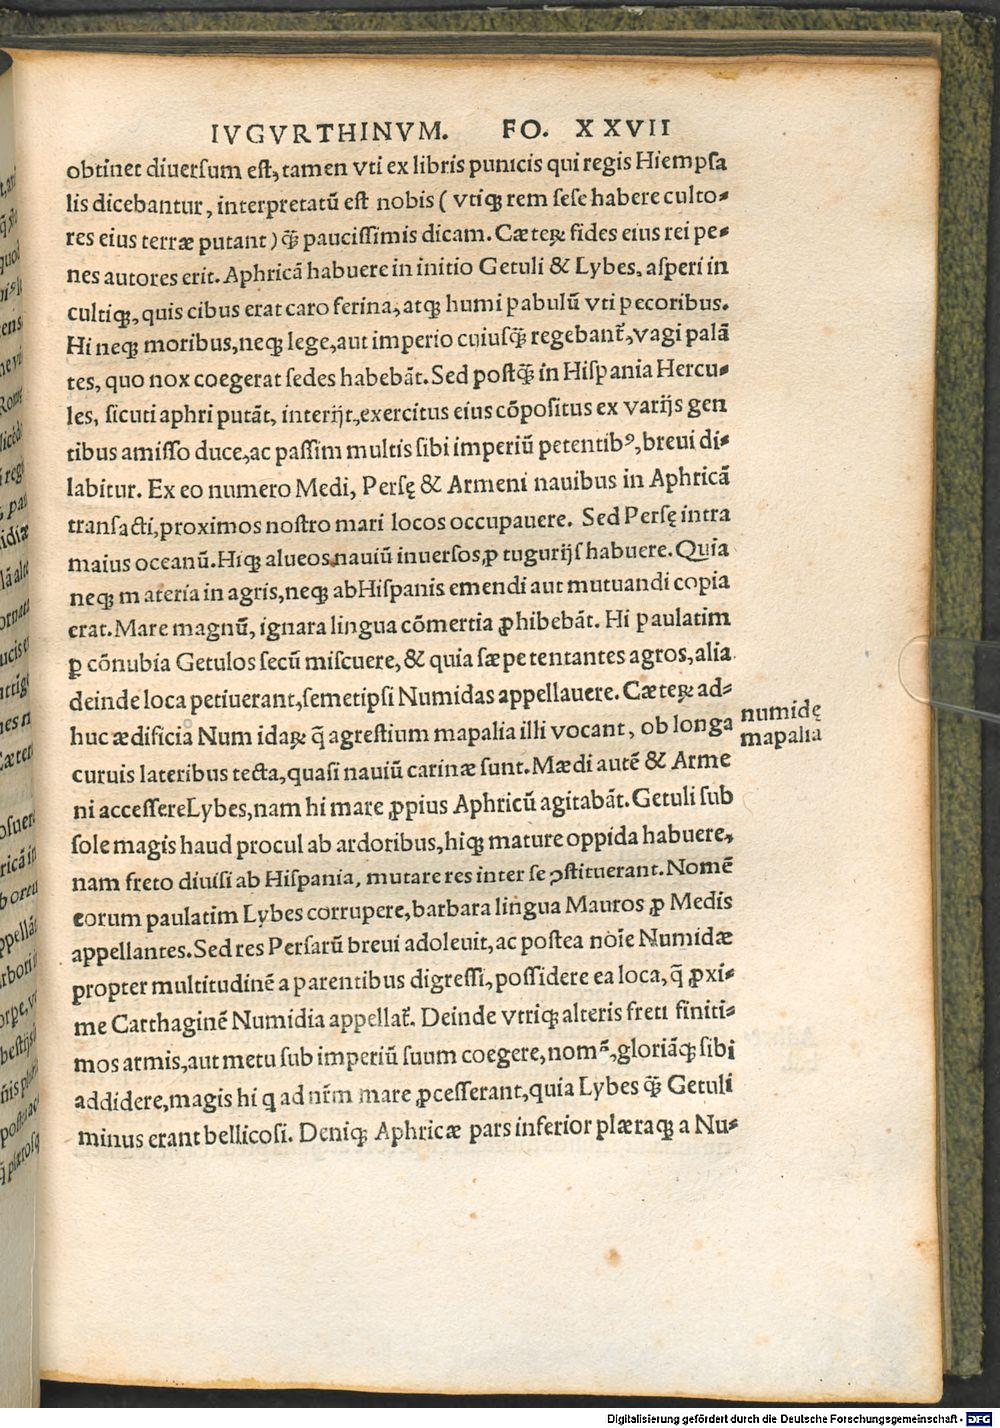 IVGVRTHINVM. FO. XXVII
obtinet diuersum est, tamen vti ex libris punicis qui regis Hiempsa
lis dicebantur, interpretatū est nobis ( vtiqꝫ rem sese habere culto-
res eius terræ putant ) q̄ꝫ paucissimis dicam. Cæteꝝ fides eius rei pe-
nes autores erit. Aphricā habuere in initio Getuli & Lybes, asperi in
cultiqꝫ, quis cibus erat caro ferina, atqꝫ humi pabulū vti pecoribus.
Hi neqꝫ moribus, neqꝫ lege, aut imperio cuiusq̄ꝫ regebant᷑, vagi palā
tes, quo nox coegerat sedes habebāt. Sed postq̄ꝫ in Hispania Hercu-
les, sicuti aphri putāt, interijt, exercitus eius cōpositus ex varijs gen
tibus amisso duce, ac passim multis sibi imperiū petentibꝰ, breui di-
labitur. Ex eo numero Medi, Persę & Armeni nauibus in Aphricā
transacti, proximos nostro mari locos occupauere. Sed Persę intra
maius oceanū. Hiqꝫ alueos nauiū inuersos, ꝓ tugurijs habuere. Quia
neqꝫ materia in agris, neqꝫ ab Hispanis emendi aut mutuandi copia
erat. Mare magnū, ignara lingua cōmertia ꝓhibebāt. Hi paulatim
ꝑ cōnubia Getulos secū miscuere, & quia sæpe tentantes agros, alia
deinde loca petiuerant, semetipsi Numidas appellauere. Cæteꝝ ad-
huc ædificia Num idaꝝ q̄ agrestium mapalia illi vocant, ob longa
curuis lateribus tecta, quasi nauiū carinæ sunt. Mædi autē & Arme
ni accessere Lybes, nam hi mare ꝓpius Aphricū agitabāt. Getuli sub
sole magis haud procul ab ardoribus, hiqꝫ mature oppida habuere,
nam freto diuisi ab Hispania, mutare res inter se ꝯstituerant. Nomē
eorum paulatim Lybes corrupere, barbara lingua Mauros ꝓ Medis
appellantes. Sed res Persarū breui adoleuit, ac postea noīe Numidæ
propter multitudinē a parentibus digressi, possidere ea loca, q̄ ꝓxi-
me Carthaginē Numidia appellat᷑. Deinde vtriqꝫ alteris freti finiti-
mos armis, aut metu sub imperiū suum coegere, nomē, gloriāqꝫ sibi
addidere, magis hi q ad nr̄m mare ꝓcesserant, quia Lybes q̄ꝫ Getuli
minus erant bellicosi. Deniqꝫ Aphricæ pars inferior plæraqꝫ a Nu-
numidę
mapalia
Digitalisierung gefördert durch die Deutsche Forschungsgemeinschaft - DFG